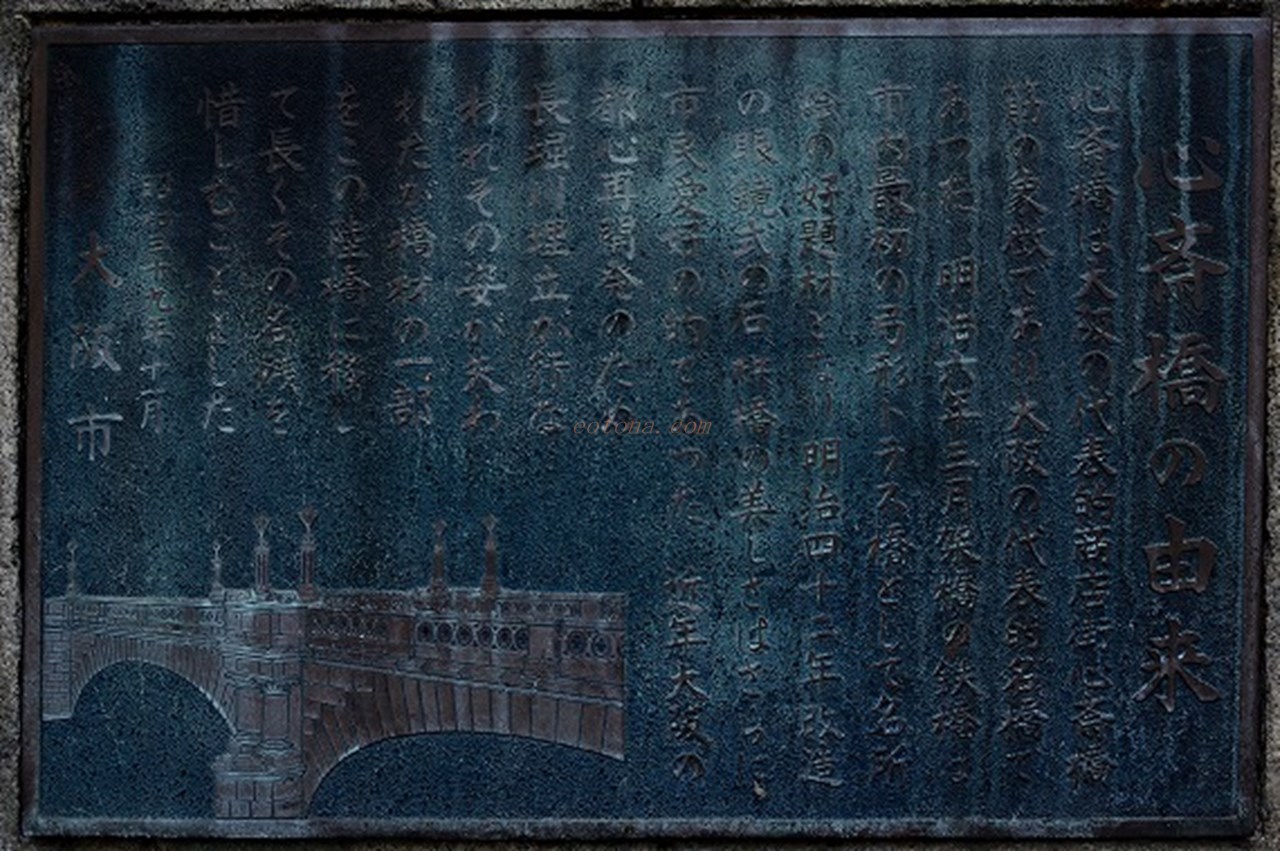 心斎橋の由来
心斎橋は大阪の代表的商店街心斎橋
筋の象徴であり大阪の代表的名橋で
あつた 明治六年三月架橋の鉄橋は
市内最初の弓形トラス橋として名所
絵の好題材となり 明治四十二年改造
の眼鏡式の石 橋の美しさはさらに
市民愛 の的であつた 近年大阪の
都心再開発のため
長堀川埋立が行な
われその姿が失わ
れたが橋材の一部
をこの陸橋に移し
て長くその名残を
惜しむこととした
昭和三十九年十一月
大阪市
eotona.com